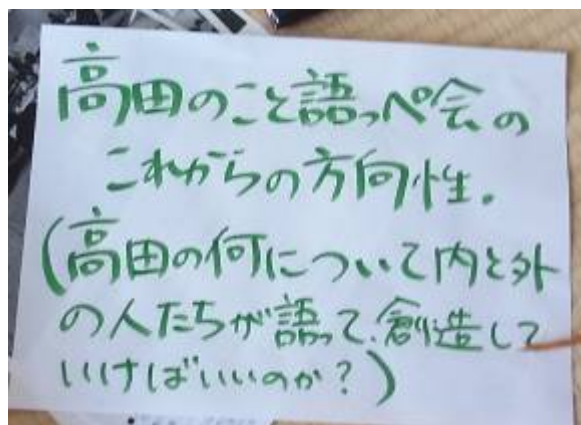 高田のこと語っぺ会の
これからの方向性。
(高田の何について内と外
の人たちが語って、創造して
いければいいのか?)